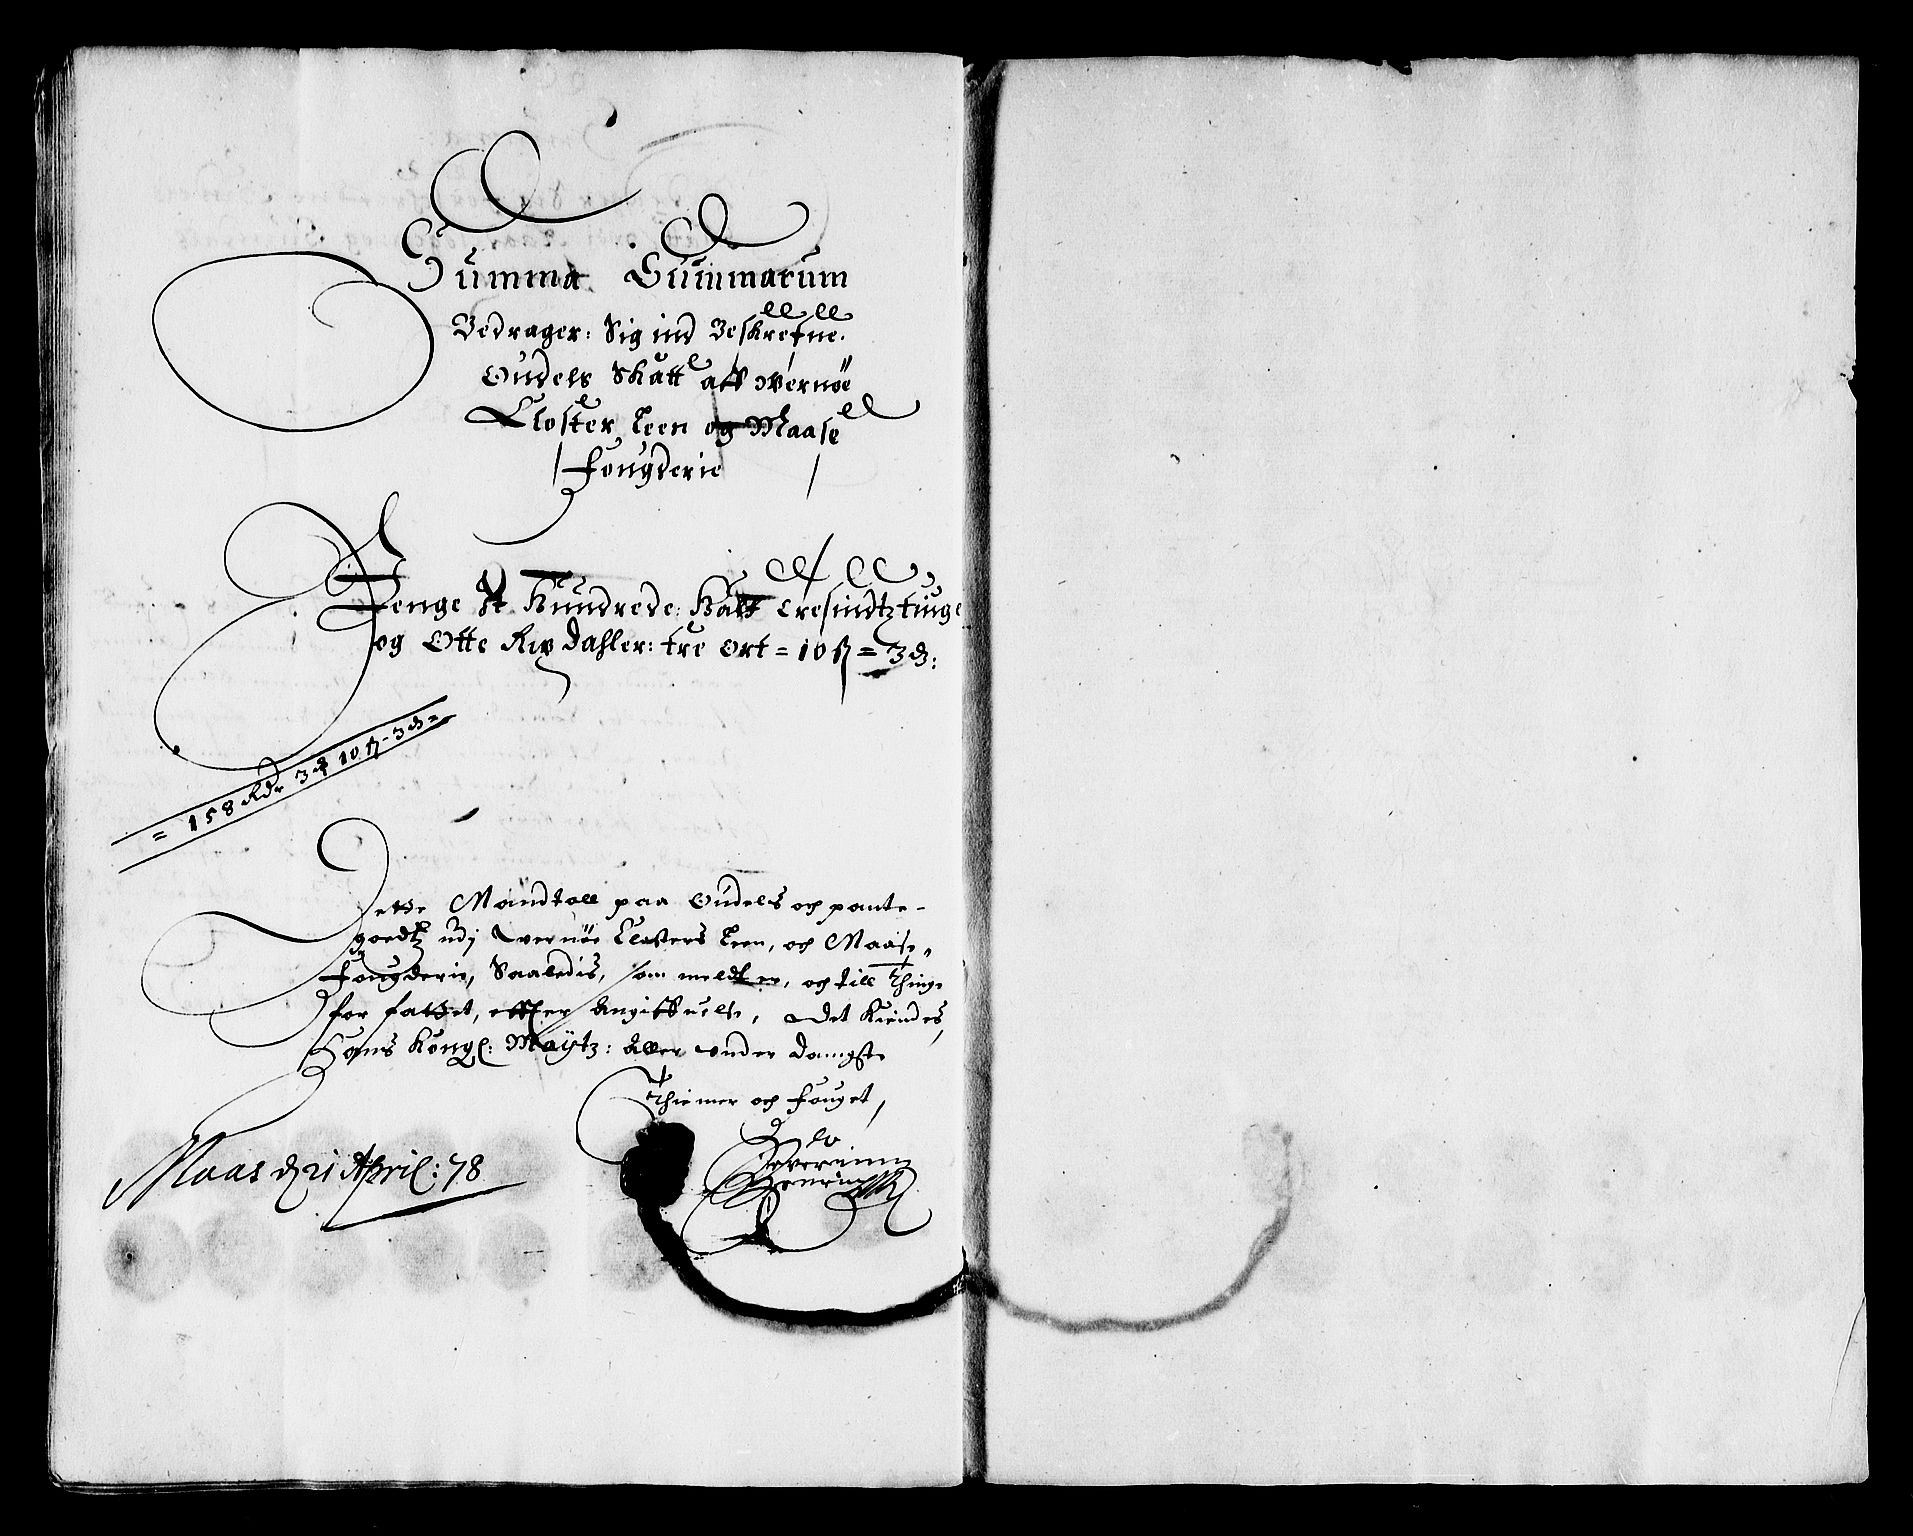 Summa Summarum
Bedrager: Sig ind Beskrefne.
Oudels Skatt aff Wernöe
Closter Leen og Maase
Fougderie
Penge Et Hundrede: Halft tresindtztiuge
og Otte Rix Dahler: tre ort = 10 ß = 3 d:
= 158 Rdr 3 ort 10 ß - 3 d =
Dette Mandtall paa Oudels och pante-
goedtz udj Wernöe Closters Leen, och Maase,
Fougderie, Saaledis, som meldt er, och till Thinge
for fattet, effter Angiffuelse, Det Kiendes,
Hans Kongl: Maÿtz: Aller under danigste
Thiener och Fouget,
Maas d 21 April: 78